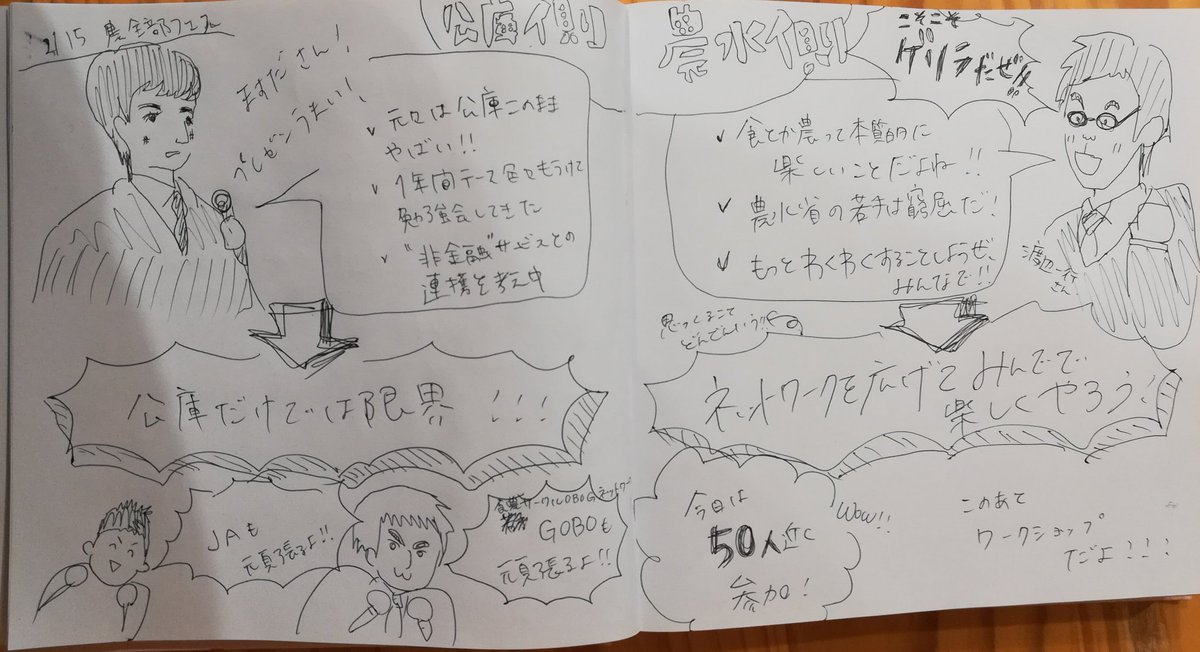 2/15 農金部フェス
公庫側
ますださん!
プレゼンうまい!
✓ 元々は公庫このまま
やばい!!
✓ 1年間テーマ色々もうけて
勉強会してきた
✓ "非金融"サービスとの
連携を考え中
公庫だけでは限界!!!
JAも
頑張るよ!!
食農サークルOBOGネットワーク
GOBOも
頑張るよ!!
農水側
こそこそ
ゲリラだぜ!!
✓ 食とか農って本質的に
楽しいことだよね!!
✓ 農水省の若手は窮屈だ!
✓ もっとわくわくすることしようぜ、
みんなで!!
渡辺一行
さん
思つくること
どんでんいう!!
ネットワークを広げてみんでで
楽しくやろう!
今日は
50人近く
参加!
Wow!!
このあと
ワークショップ
だよ!!!